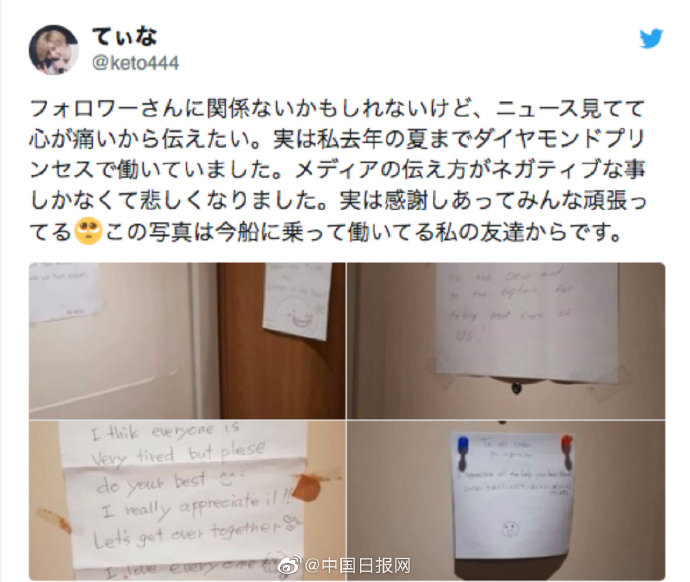 てぃな
@keto444
フォロワーさんに関係ないかもしれないけど、ニュース見てて
心が痛いから伝えたい。実は私去年の夏までダイヤモンドプリ
ンセスで働いていました。メディアの伝え方がネガティブな事
しかなくて悲しくなりました。実は感謝しあってみんな頑張っ
てる🥺この写真は今船に乗って働いてる私の友達からです。
to the Crew and
to the Captain for
taking good care of
US!
I thik everyone is
very tired but plese
do your best
I really appreciate it!!
Let's get over together
I love everyone
To all crew
I appreciate all the help
@中国日报网